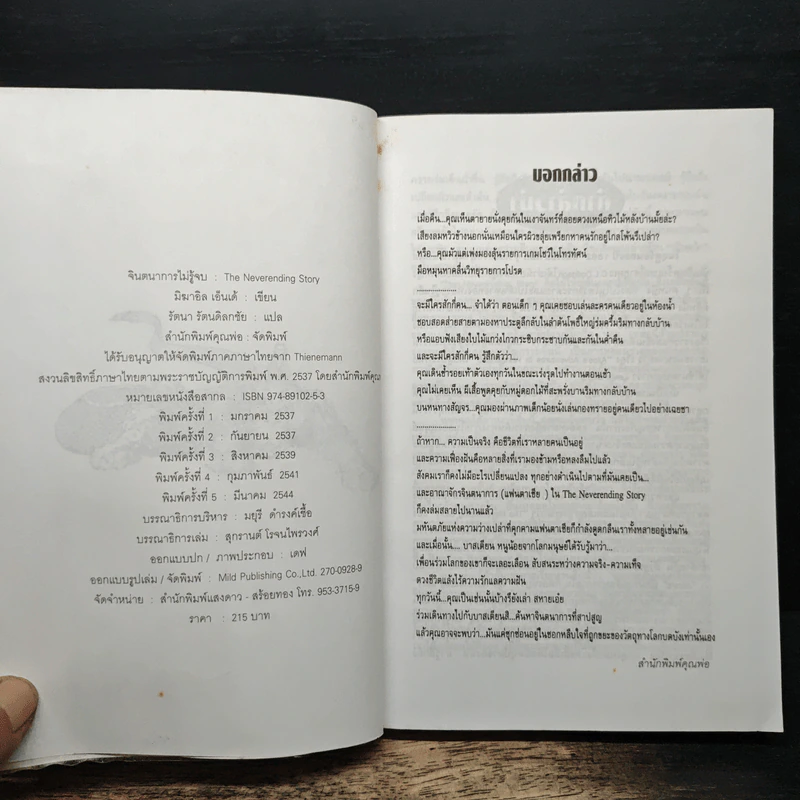 จินตนาการไม่รู้จบ : The Neverending Story
มิฆาอิล เอ็นเด้ : เขียน
รัตนา รัตนดิลกชัย : แปล
สำนักพิมพ์คุณพ่อ : จัดพิมพ์
ได้รับอนุญาตให้จัดพิมพ์ภาคภาษาไทยจาก Thienemann
สงวนลิขสิทธิ์ภาษาไทยตามพระราชบัญญัติการพิมพ์ พ.ศ. 2537 โดยสำนักพิมพ์คุณ
หมายเลขหนังสือสากล : ISBN 974-89102-5-3
พิมพ์ครั้งที่ 1 : มกราคม 2537
พิมพ์ครั้งที่ 2 : กันยายน 2537
พิมพ์ครั้งที่ 3 : สิงหาคม 2539
พิมพ์ครั้งที่ 4 : กุมภาพันธ์ 2541
พิมพ์ครั้งที่ 5 : มีนาคม 2544
บรรณาธิการบริหาร : มยุรี ดำรงค์เชื้อ
บรรณาธิการเล่ม : สุกรานต์ โรจนไพรวงศ์
ออกแบบปก / ภาพประกอบ : เดฟ
ออกแบบรูปเล่ม / จัดพิมพ์ : Mild Publishing Co.,Ltd. 270-0928-9
จัดจำหน่าย : สำนักพิมพ์แสงดาว - สร้อยทอง โทร. 953-3715-9
ราคา : 215 บาท
บอกกล่าว
เมื่อคืน...คุณเห็นตายายนั่งคุยกันในเงาจันทร์ที่ลอยดวงเหนือทิวไม้หลังบ้านมั้ยล่ะ?
เสียงลมหวิวข้างนอกนั่นเหมือนใครผิวขลุ่ยเพรียกหาคนรักอยู่ไกลโพ้นรึเปล่า?
หรือ...คุณมัวแต่เพ่งมองลุ้นรายการเกมโชว์ในโทรทัศน์
มือหมุนหาคลื่นวิทยุรายการโปรด
....................
จะมีใครสักกี่คน... จำได้ว่า ตอนเด็ก ๆ คุณเคยชอบเล่นละครคนเดียวอยู่ในห้องน้ำ
ชอบสอดส่ายสายตามองหาประตูลึกลับในลำต้นโพธิ์ใหญ่ร่มครึ้มริมทางกลับบ้าน
หรือแอบฟังเสียงใบไม้แกว่งไกวกระซิบกระซาบกันและกันในค่ำคืน
และจะมีใครสักกี่คน รู้สึกตัวว่า...
คุณเดินซ้ำรอยเท้าตัวเองทุกวันในขณะเร่งรุดไปทำงานตอนเช้า
คุณไม่เคยเห็น ผีเสื้อพูดคุยกับหมู่ดอกไม้ที่สะพรั่งบานริมทางกลับบ้าน
บนหนทางสัญจร...คุณมองผ่านภาพเด็กน้อยนั่งเล่นกองทรายอยู่คนเดียวไปอย่างเฉยชา
....................
ถ้าหาก... ความเป็นจริง คือชีวิตที่เราหลายคนเป็นอยู่
และความเพ้อฝันคือหลายสิ่งที่เรามองข้ามหรือหลงลืมไปแล้ว
สังคมเราก็คงไม่มีอะไรเปลี่ยนแปลง ทุกอย่างดำเนินไปตามที่มันเคยเป็น...
และอาณาจักรจินตนาการ (แฟนตาเซีย ) ใน The Neverending Story
ก็คงล่มสลายไปนานแล้ว
มหันตภัยแห่งความว่างเปล่าที่คุกคามแฟนตาเซียก็กำลังดูดกลืนเราทั้งหลายอยู่เช่นกัน
และเมื่อนั้น.... บาสเตียน หนูน้อยจากโลกมนุษย์ได้รับรู้มาว่า...
เพื่อนร่วมโลกของเขาก็จะเลอะเลือน สับสนระหว่างความจริง-ความเท็จ
ดวงชีวิตแล้งไร้ความรักแลความฝัน
ทุกวันนี้...คุณเป็นเช่นนั้นบ้างรึยังเล่า สหายเอ๋ย
ร่วมเดินทางไปกับบาสเตียนสิ...ค้นหาจินตนาการที่สาปสูญ
แล้วคุณอาจจะพบว่า...มันแค่ซุกซ่อนอยู่ในซอกหลืบใจที่ถูกขยะของวัตถุทางโลกบดบังเท่านั้นเอง
สำนักพิมพ์คุณพ่อ